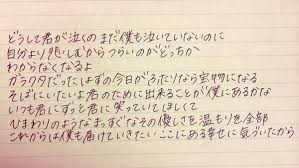 どうして君が泣くの まだ僕も泣いていないのに
自分より 悲しむから つらいのがどっちか
わからなくなるよ
ガラクタだったはずの今日が ふたりなら 宝物になる
そばにいたいよ 君のために出来ることが 僕にあるかな
いつも君に ずっと君に 笑っていてほしくて
ひまわりのような まっすぐなその優しさを 温もりを 全部
これからは僕も 届けていきたい ここにある幸せに 気づいたから